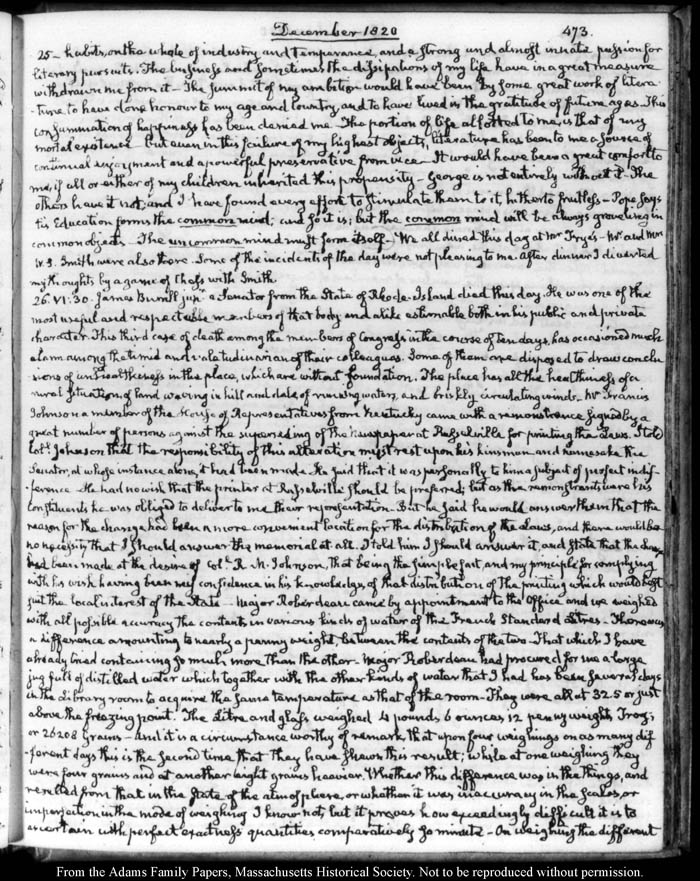 December 1820
473.
25 – habits, on the whole of industry and temperance, and a strong and almost innate passion for
literary pursuits. The business and sometimes the dissipations of my life have in a great measure
withdrawn me from it – The summit of my ambition would have been by some great work of litera-
-ture to have done honour to my age and country, and to have lived in the gratitude of future ages. This
consummation of happiness has been denied me. The portion of life allotted to me is that of my
mortal existence. But even in this failure of my highest object, literature has been to me a source of
continual enjoyment and a powerful preservative from vice – It would have been a great comfort to
me, if all or either of my children inherited this propensity – George is not entirely without it – The
others have it not, and I have found every effort to stimulate them to it, hitherto fruitless – Pope says
tis Education forms the common mind; and so it is; but the common mind will be always groveling in
common objects – The uncommon mind must form itself – We all dined this day at Mr Frye's – Mr and Mrs
W. S. Smith were also there. Some of the incidents of the day were not pleasing to me. After dinner I diverted
my thoughts by a game of Chess with Smith.
26. VI:30. James Burrill junr. a Senator from the State of Rhode-Island died this day. He was one of the
most useful and respectable members of that body and alike estimable both in his public and private
character. This third case of death among the members of Congress in the course of ten days, has occasioned much
alarm among the timid and valetudinarian of their colleagues. Some of them are disposed to draw conclu
sions of unhealthiness in the place, which are without foundation. The place has all the healthiness of a
rural situation, of land waving in hill and dale, of running waters, and briskly circulating winds. Mr Francis
Johnson a member of the House of Representatives from Kentucky came with a remonstrance signed by a
great number of persons against the superseding of the newspaper at Russelville for printing the Laws. I told
Johnson that the responsibility of this alteration must rest upon his kinsman and namesake the
Senator, at whose instance alone, it had been made. He said that it was personally to him a subject of perfect indif-
-ference. He had no wish that the printer at Russelville should be preferred; but as the remonstrants were his
Constituents he was obliged to deliver to me their representation. But he said he would answer them that the
reason for the change had been a more convenient location for the distribution of the Laws, and there would be
no necessity that I should answer the memorial at all. I told him I should answer it, and state that the change
had been made at the desire of Coll. R. M. Johnson, that being the simple fact, and my principle for complying
with his wish having been my confidence in his knowledge, of that distribution of the printing which would best
suit the local interest of the State – Major Roberdeau came by appointment to the Office and we weighed
with all possible accuracy the contents in various kinds of water of the French Standard Litres – There was
a difference amounting to nearly a penny weight, between the contents of the two – That which I have
already tried containing so much more than the other – Major Roberdeau had procured for me a large
jug full of distilled water which together with the other kinds of water that I had has been several days
in the Library room to acquire the same temperature as that of the room – They were all at 32.5 or just
above the freezing point. The Litre and glass weighed 4 pounds 6 ounces 12 penny weights Troy;
or 26208 Grains – And it is a circumstance worthy of remark, that upon four weighings on as many dif
-ferent days this is the second time that they have shewn this result; while at one weighing they
were four grains and at another eight grains heavier. Whether this difference was in the things, and
resulted from that in the state of the atmosphere, or whether it was inaccuracy in the scales, or
imperfection in the mode of weighing I know not, but it proves how exceedingly difficult it is to
ascertain with perfect exactness quantities comparatively so minute – On weighing the different
From the Adams Family Papers, Massachusetts Historical Society. Not to be reproduced without permission.